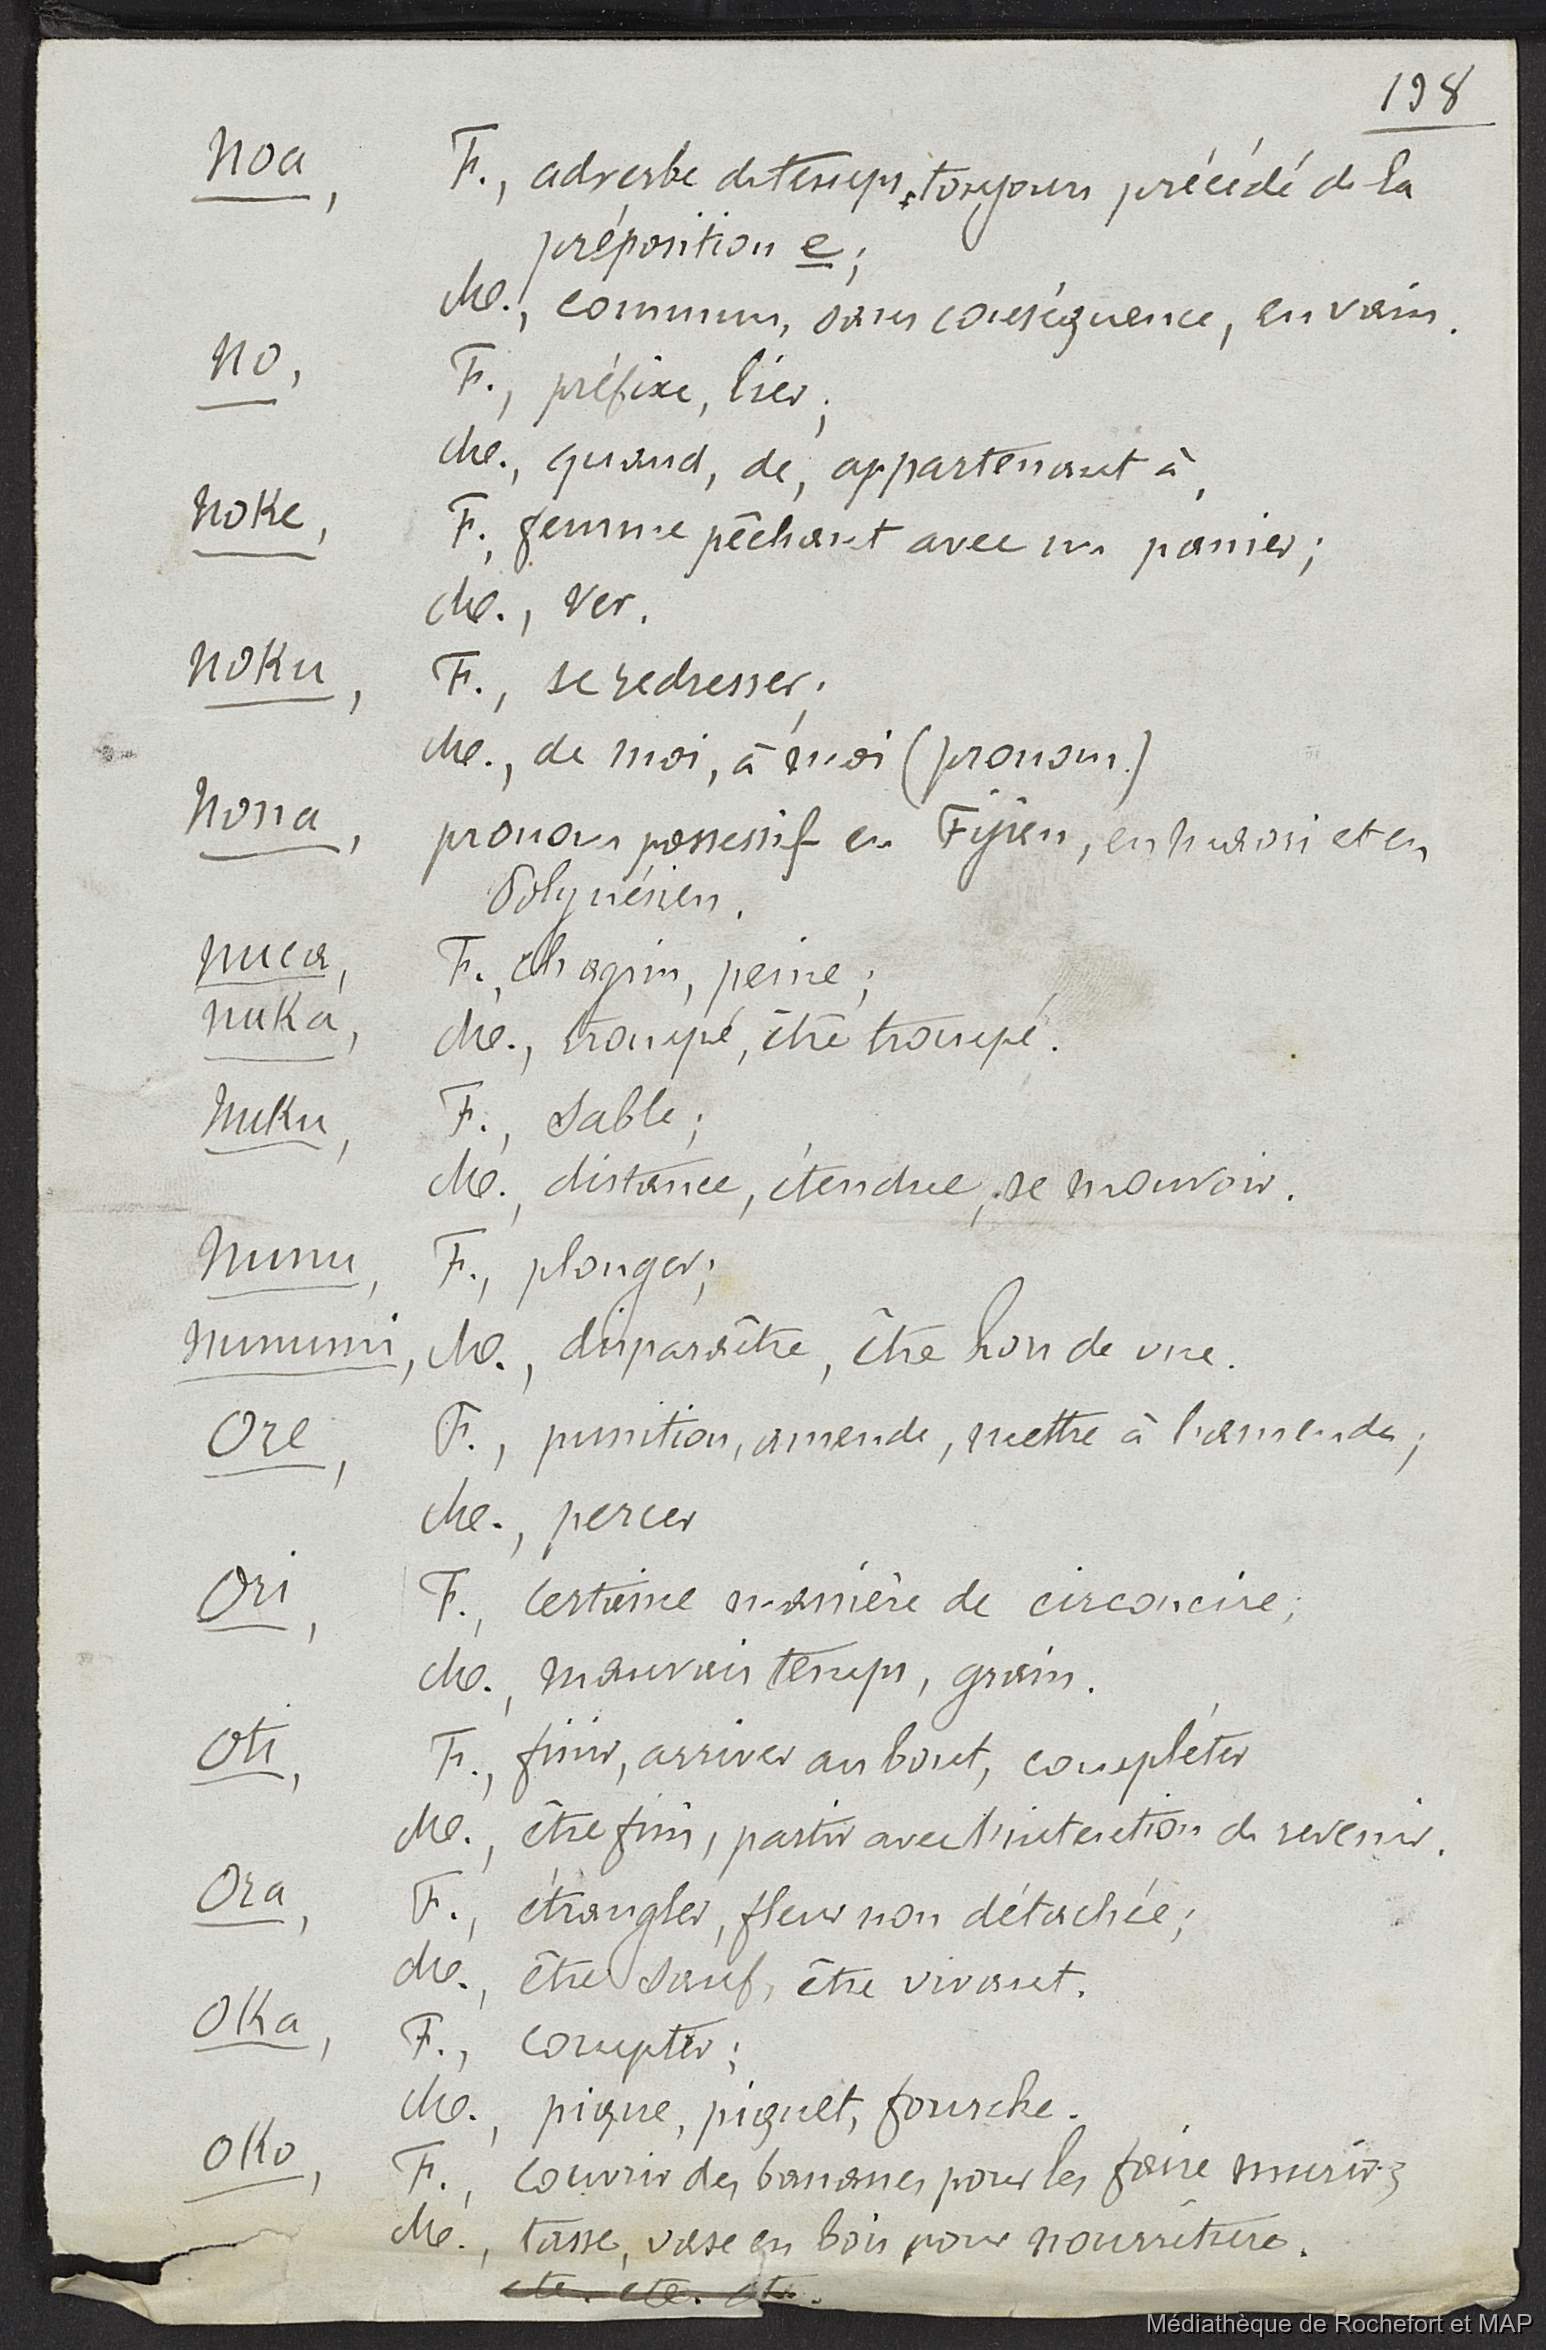 198
Noa, F., adverbe de temps, toujours précédé de la
préposition e;
Me., commun, sans conséquence, en vain.
No, F., préfixe, lier;
Me., quand, de, appartenant à,
Noke, F., femme pêchant avec un panier;
Me., ver.
Noku, F., se redresser;
Me., de moi, à moi (pronom.)
Nona, pronom possessif en Fijien, en maori et en
Polynésien.
Nuca, F., chagrin, peine;
nuka, Me., trompé, être trompé.
Nuku, F., sable;
Me., distance, étendue, se mouvoir.
Nunu, F., plonger;
nunumi, Me., disparaître, être hors de vue.
Ore, F., punition, amende, mettre à l'amende;
Me., percer
Ori, F., certaine manière de circoncire;
Me., mauvais temps, grain.
Oti, F., finir, arriver au bout, compléter
Me., être fini, partir avec l'intention de revenir.
Ora, F., étrangler, fleur non détachée;
Me., être sauf, être vivant.
Oka, F., compter;
Me., pique, piquet, fourche.
Oko, F., couvrir des bananes pour les faire murir;
Me., tasse, vase en bois pour nourriture.
etc. etc. etc.
Médiathèque de Rochefort et MAP